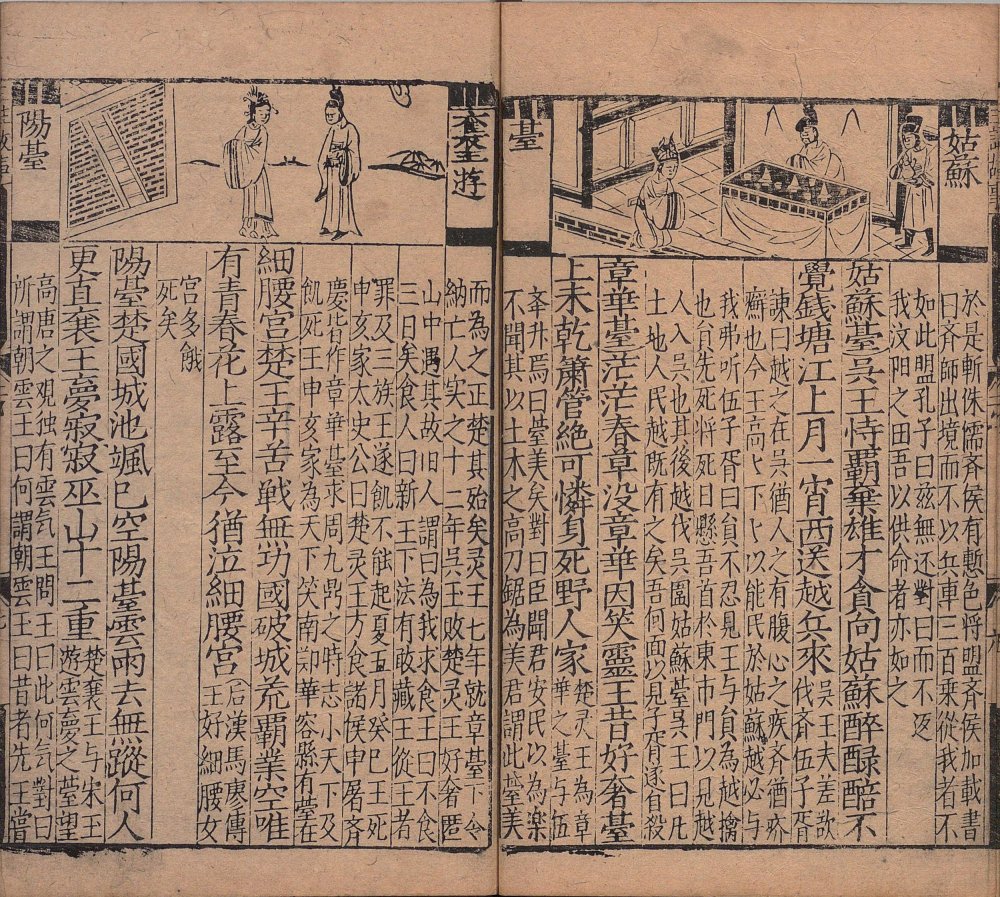 姑蘇
臺
於是斬侏儒齊侯有慙色将盟齊侯加載書
曰齊師出境而不以兵車三百乗從我者不
如此盟孔子曰兹無还對曰而不返
我汶阳之田吾以供命者亦如之
姑蘇臺)吳王恃霸棄雄才貪向姑蘇醉醁醅不
覺錢塘江上月一宵西送越兵來 吳王夫差欲
伐齐伍子胥
諫曰越之在吳猶人之有腹心之疾齐猶疥
癬也今王高卜下卜以能民於姑蘇越必与
我弗听伍子胥曰貟不忍見王与貟為越擒
也貟先死将死曰懸吾首於東市門以見越
人入吳也其後越伐吳圍姑蘇䑓吳王曰凡
土地人民越既有之矣吾何面以見子胥遂自殺
章華臺)茫茫春草没章華因笑靈王昔好奢臺
上未乾簫管絶可憐身死野人家 楚灵王為章
華之臺与伍
峯升焉曰䑓美矣對曰臣聞君安民以為楽
不聞其以土木之高刀鋸為美君謂此䑓美
襄王遊
陽臺
而為之正楚其始矣灵王七年就章䑓下令
納亡人实之十二年吳王敗楚灵王好奢匿
山中遇其故旧人謂曰為我求食王曰不食
三日矣食人曰新王下法有敢藏王從王者
罪及三族王遂飢不能起夏五月癸巳王死
申亥家太史公曰楚灵王方食諸侯申屠齐
慶皆作章華䑓求周九鼎之時志小天下及
飢死王申亥家為天下笑南郑華容縣有䑓在
細腰宮楚王辛苦戦無功國破城荒霸業空唯
有青春花上露至今猶泣細腰宮 (后漢馬廖傳
王好細腰女
宮多餓
死矣
陽臺楚國城池颯已空陽臺雲雨去無蹤何人
更直襄王夢寂寂巫山十二重 楚襄王与宋玉
游雲夢之䑓望
高唐之观独有雲气王問王曰此何气對曰
所謂朝雲王曰何謂朝雲玉曰昔者先王嘗